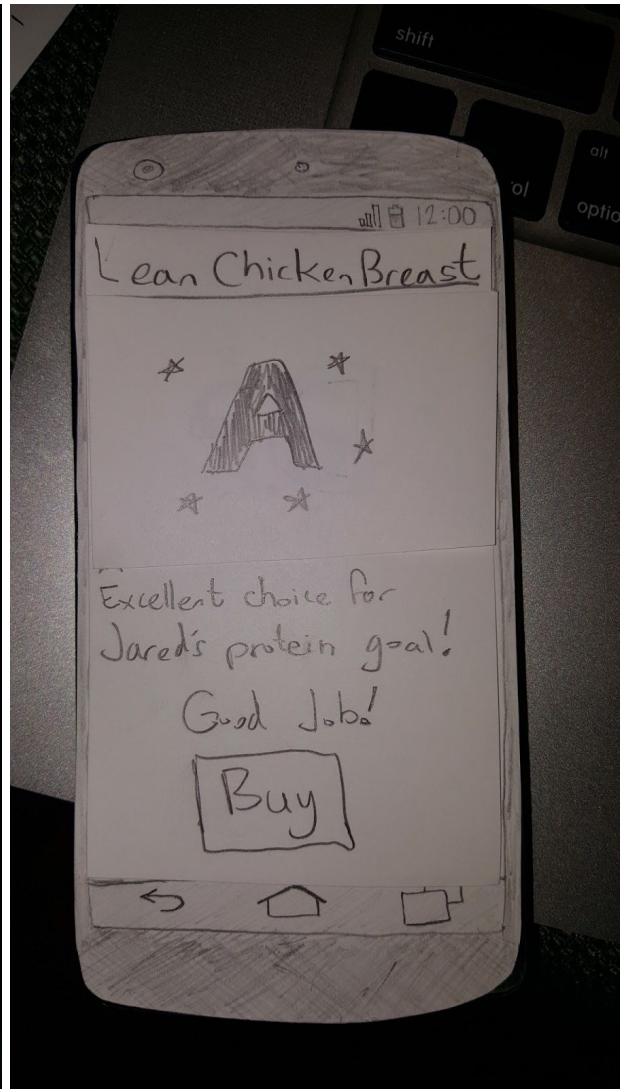 shift
alt
ol
optio
12:00
Lean Chicken Breast
A
Excellent choice for
Jared's protein goal!
Good Job!
Buy